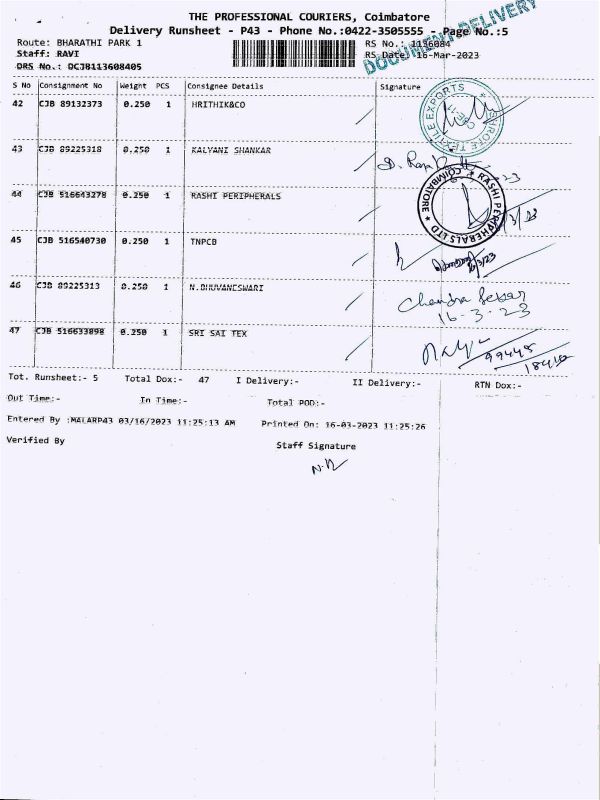 THE PROFESSIONAL COURIERS, Coimbatore
Delivery Runsheet - P43 - Phone No.:0422-3505555 - Page No.:5
DOCUMENT DELIVERY
Route: BHARATHI PARK 1
RS No.: 1136084
Staff: RAVI
RS Date: 16-Mar-2023
DRS No.: DCJB113608405
S No Consignment No Weight PCS Consignee Details Signature
42 CJB 89132373 0.250 1 HRITHIK&CO
TEXTILE EXPORTS
43 CJB 89225318 0.250 1 KALYANI SHANKAR
44 CJB 516643278 0.250 1 RASHI PERIPHERALS
RASHI PERIPHERALS LTD * COIMBATORE *
45 CJB 516540730 0.250 1 TNPCB
16/3/23
46 CJB 89225313 0.250 1 N.BHUVANESWARI
Chandra Sekar
16-3-23
47 CJB 516633898 0.250 1 SRI SAI TEX
99445
18410
Tot. Runsheet:- 5 Total Dox:- 47 I Delivery:- II Delivery:- RTN Dox:-
Out Time:- In Time:- Total POD:-
Entered By :MALARP43 03/16/2023 11:25:13 AM Printed On: 16-03-2023 11:25:26
Verified By
Staff Signature